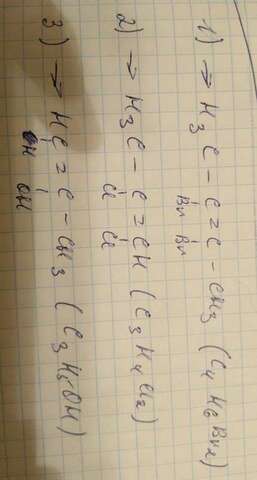 1) → H₃C - C = C - CH₃ (C₄H₆Br₂)
Br Br
2) → H₃C - C = CH (C₃H₄Cl₂)
Cl Cl
3) → HC = C - CH₃ (C₃H₅OH)
OH OH